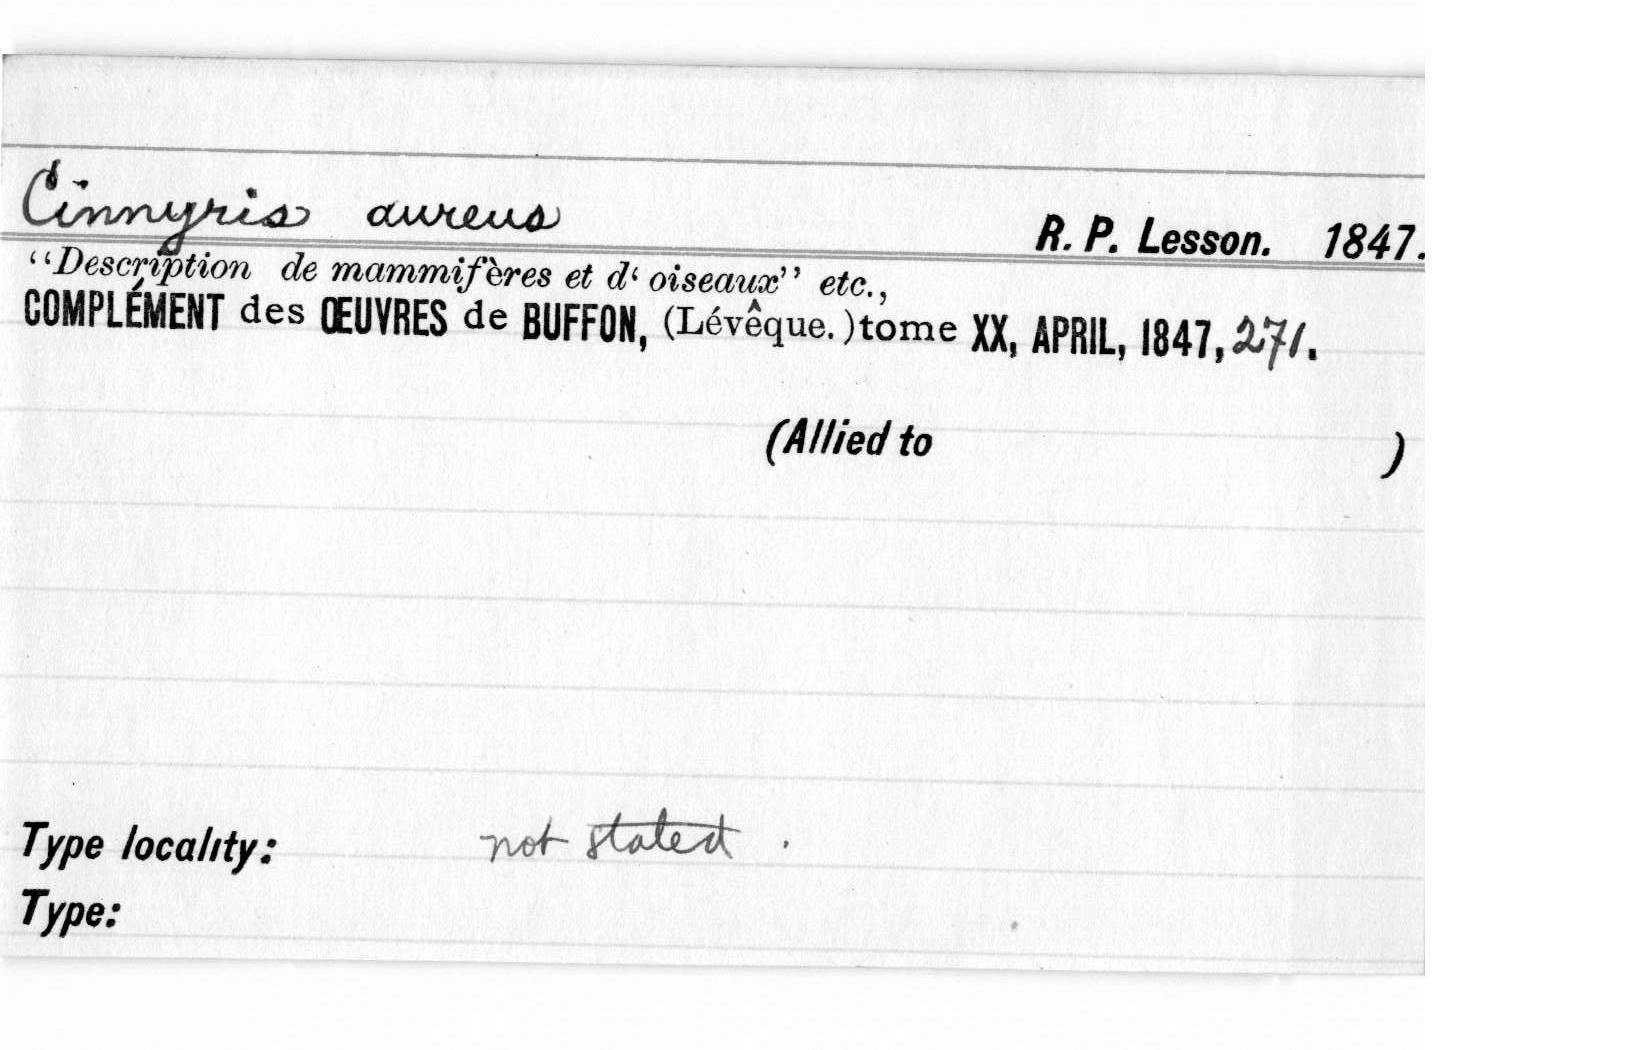 Cinnyris aureus R. P. Lesson. 1847.
"Description de mammifères et d‘ oiseaux" etc.,
COMPLÉMENT des ŒUVRES de BUFFON, (Lévêque.) tome XX, APRIL, 1847, 271.
(Allied to )
Type locality: not stated.
Type: